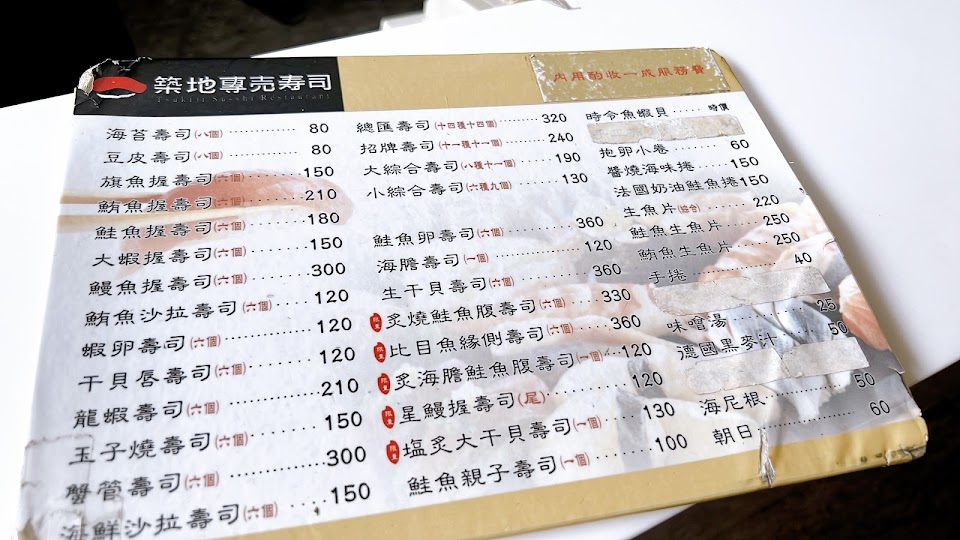 築地專売寿司
Tsukiji Su-shi Restaurant
內用酌收一成服務費
海苔壽司(八個)············80
豆皮壽司(八個)············80
旗魚握壽司(六個)········150
鮪魚握壽司(六個)········210
鮭魚握壽司(六個)········180
大蝦握壽司(六個)········150
鰻魚握壽司(六個)········300
鮪魚沙拉壽司(六個)·····120
蝦卵壽司(六個)············120
干貝唇壽司(六個)········120
龍蝦壽司(六個)············210
玉子燒壽司(六個)········150
蟹管壽司(六個)············300
海鮮沙拉壽司(六個)·····150
總匯壽司(十四種十四個)········320
招牌壽司(十一種十一個)········240
大綜合壽司(八種十一個)········190
小綜合壽司(六種九個)········130
鮭魚卵壽司(六個)············360
海膽壽司(一個)············120
生干貝壽司(六個)············360
限量 炙燒鮭魚腹壽司(六個)····330
限量 比目魚緣側壽司(六個)····360
限量 炙海膽鮭魚腹壽司(一個)··120
限量 星鰻握壽司(尾)········120
限量 塩炙大干貝壽司(一個)····130
鮭魚親子壽司(一個)········100
時令魚蝦貝······時價
抱卵小卷········60
醬燒海味捲·····150
法國奶油鮭魚捲150
生魚片(綜合)······220
鮭魚生魚片····250
鮪魚生魚片····250
手捲············40
味噌湯··········25
德國黑麥汁······50
海尼根··········50
朝日············60